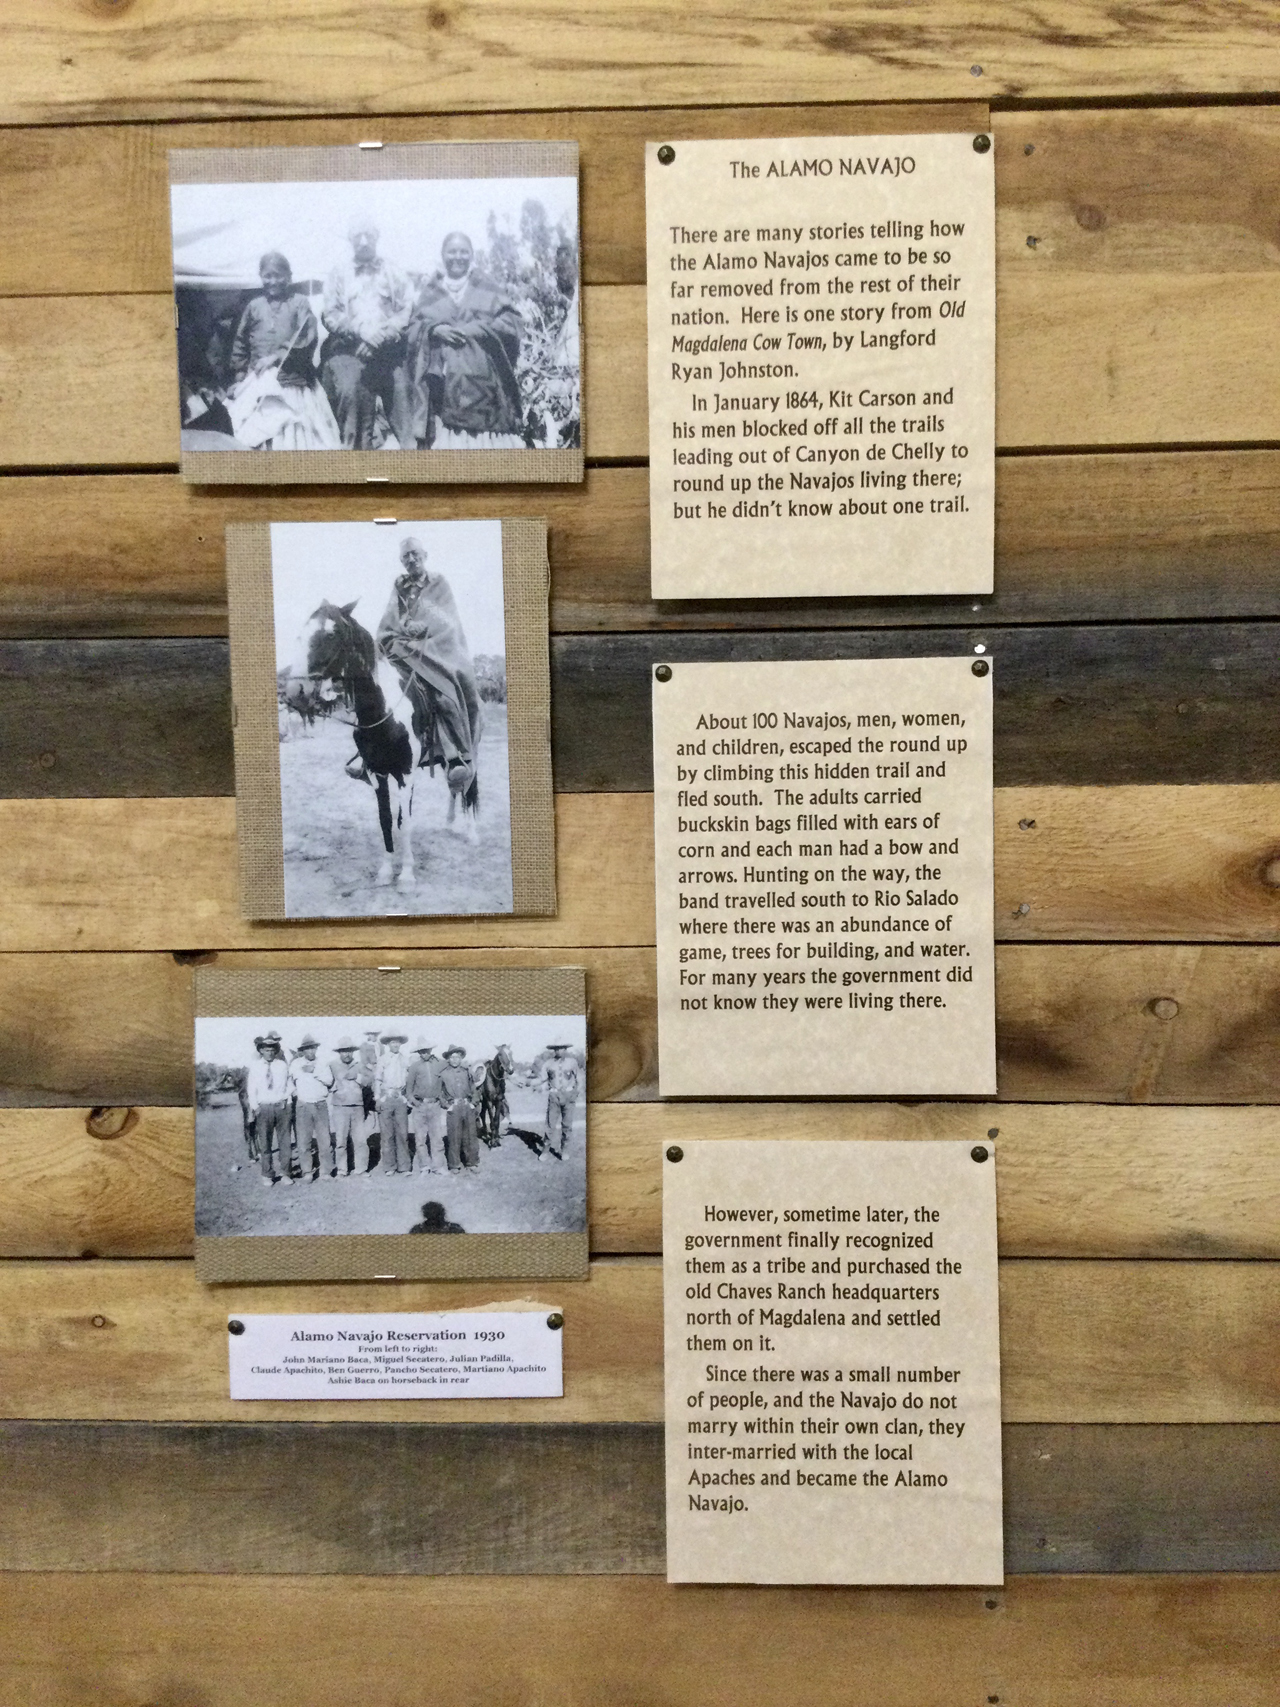 The ALAMO NAVAJO
There are many stories telling how
the Alamo Navajos came to be so
far removed from the rest of their
nation. Here is one story from Old
Magdalena Cow Town, by Langford
Ryan Johnston.
In January 1864, Kit Carson and
his men blocked off all the trails
leading out of Canyon de Chelly to
round up the Navajos living there;
but he didn't know about one trail.
About 100 Navajos, men, women,
and children, escaped the round up
by climbing this hidden trail and
fled south. The adults carried
buckskin bags filled with ears of
corn and each man had a bow and
arrows. Hunting on the way, the
band travelled south to Rio Salado
where there was an abundance of
game, trees for building, and water.
For many years the government did
not know they were living there.
However, sometime later, the
government finally recognized
them as a tribe and purchased the
old Chaves Ranch headquarters
north of Magdalena and settled
them on it.
Since there was a small number
of people, and the Navajo do not
marry within their own clan, they
inter-married with the local
Apaches and became the Alamo
Navajo.
Alamo Navajo Reservation 1930
From left to right:
John Mariano Baca, Miguel Secatero, Julian Padilla,
Claude Apachito, Ben Guerro, Pancho Secatero, Martiano Apachito
Ashie Baca on horseback in rear